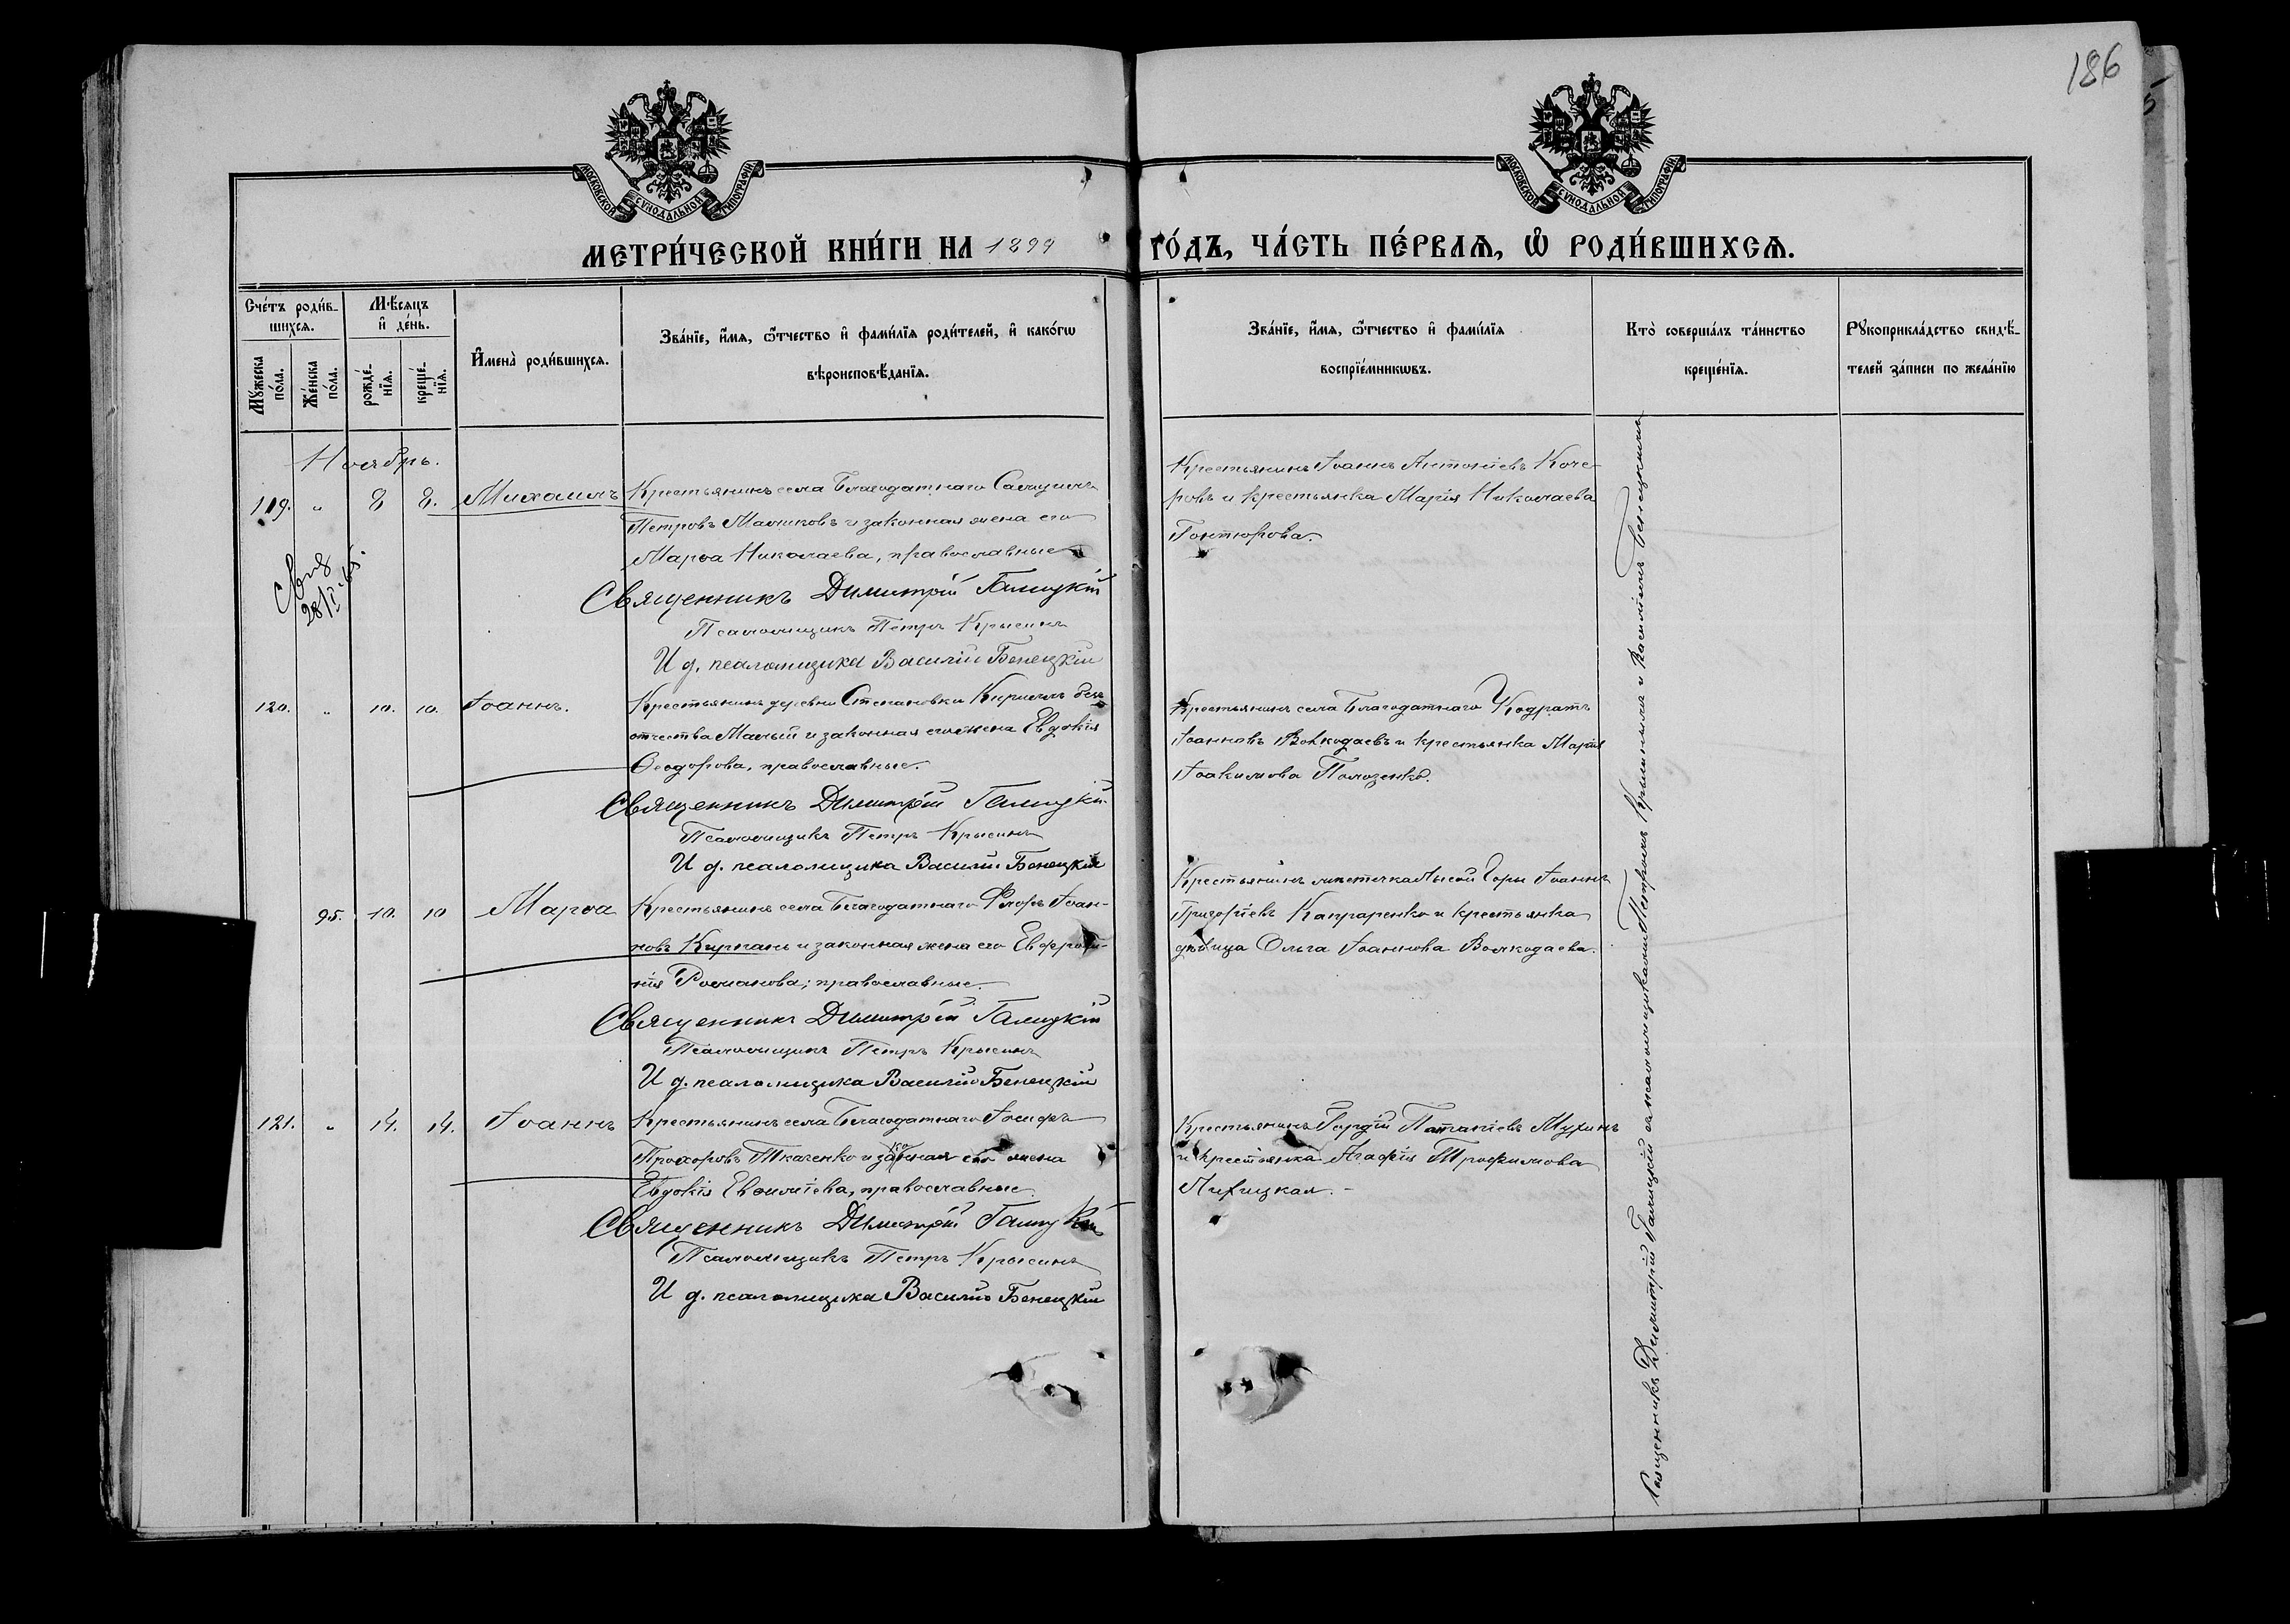 186
МОСКОВСКОЙ СѴНОДАЛЬНОЙ ТИПОГРАФІИ
МОСКОВСКОЙ СѴНОДАЛЬНОЙ ТИПОГРАФІИ
МЕТРИ́ЧЕСКОЙ КНИ́ГИ НА 1899 ГО́ДЪ, ЧА́СТЬ ПЕ́РВАѦ, Ѽ РОДИ́ВШИХСѦ.
Сче́тъ роди́в-
шихсѧ.
Мѣ́сѧцъ
и҆ де́нь.
Мꙋ́жеска по́ла.
Же́нска по́ла.
рожде́-
нїѧ.
креще́-
нїѧ.
И҆мена̀ роди́вшихсѧ.
Зва́нїе, и҆́мѧ, ѻ҆́тчество и҆ фамі́лїѧ роди́телей, и҆ како́гѡ
вѣроисповѣ́данїѧ.
Зва́нїе, и҆́мѧ, ѻ҆́тчество и҆ фамі́лїѧ
воспрїе́мникѡвъ.
Кто̀ соверша́лъ та́инство
креще́нїѧ.
Рꙋкоприкла́дство свидѣ́-
телей за́писи по жела́нїю
Ноябрь.
119. " 8 8. Михаилъ
Крестьянинъ села Благодатнаго Самуилъ
Петровъ Маликовъ и законная жена его
Марѳа Николаева, православные
Священникъ Димитрій Галицкій
Псаломщикъ Петръ Крысинъ
И д. псаломщика Василій Бенецкій
Крестьянинъ Іоаннъ Антоніевъ Коче-
ровъ и крестьянка Марія Николаева
Гонтюрова.
120. " 10. 10. Іоаннъ.
Крестьянинъ деревни Степановки Кириллъ безъ
отчества Малый и законная его жена Евдокія
Ѳеодорова, православные.
Священникъ Димитрій Галицкій
Псаломщикъ Петръ Крысинъ
И д. псаломщика Василій Бенецкій
Крестьянинъ села Благодатнаго Кодратъ
Іоанновъ Волкодаевъ и крестьянка Марія
Іоакимова Полозенко.
95. 10. 10 Марѳа
Крестьянинъ села Благодатнаго Флоръ Іоан-
новъ Кирпань и законная жена его Евфроси-
нія Романова; православные.
Священникъ Димитрій Галицкій
Псаломщикъ Петръ Крысинъ
И д. псаломщика Василій Бенецкій
Крестьянинъ мѣстечка Лысой Горы Іоаннъ
Григоріевъ Капраренко и крестьянка
дѣвица Ольга Іоаннова Волкодаева.
121. " 14. 14. Іоаннъ
Крестьянинъ села Благодатнаго Іосифъ
Прохоровъ Ткаченко и законная его жена
Евдокія Евѳиміева, православные.
Священникъ Димитрій Галицкій
Псаломщикъ Петръ Крысинъ
И д. псаломщика Василій Бенецкій
Крестьянинъ Гордій Потапіевъ Мухинъ
и крестьянка Агафія Трофимова
Священникъ Димитрій Галицкій съ псаломщиками Петромъ Крысинымъ и Василіемъ Бенецкимъ